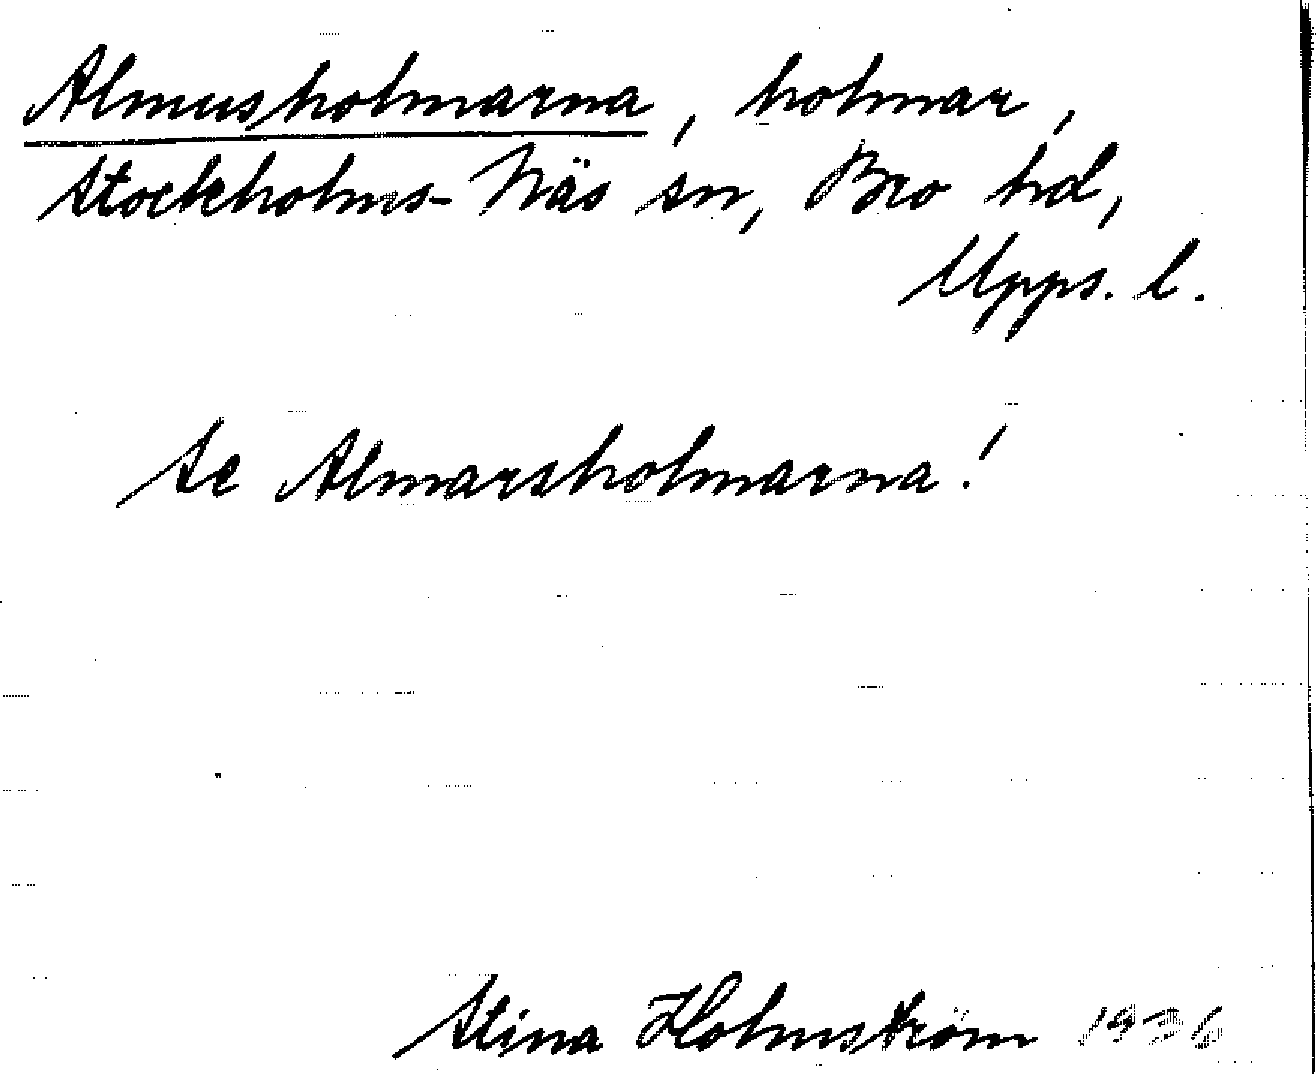 Almusholmarna, holmar,
Stockholms-Näs sn, Bro hd,
Upps. l.
Se Almarsholmarna!
Stina Holmström 1936